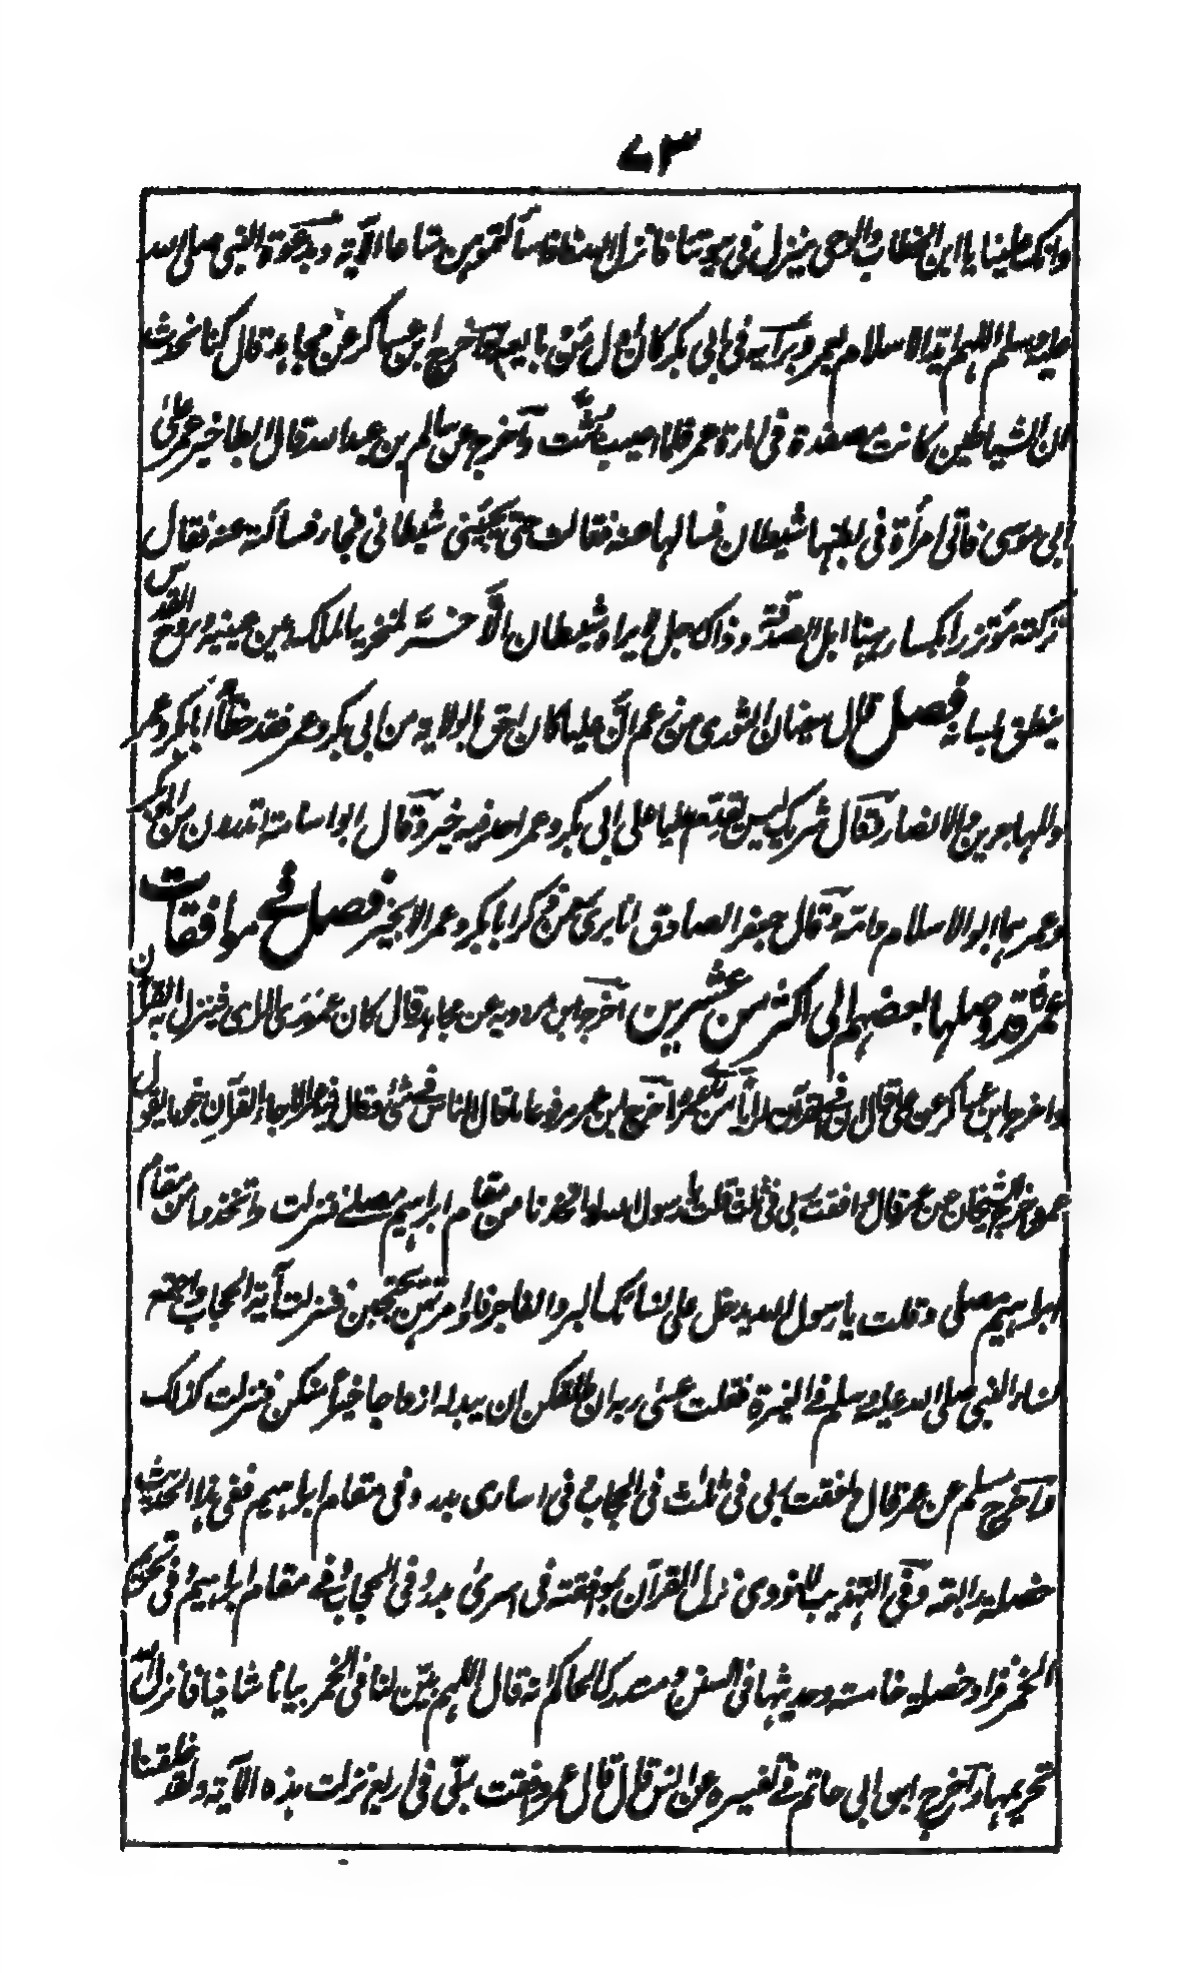 ٧٣
وانك علينا يا ابن الخطاب والوحى ينزل فى بيوتنا فانزل الله فاذا سألتموهن متاعا الآية وبدعوة النبى صلى الله
عليه وسلم اللهم ايد الاسلام بعمر وبرأيه فى ابى بكر كان اول من بايعه واخرج ابن عساكر عن مجاهد قال كنا نحدث
ان الشياطين كانت مصفدة فى امارة عمر فلما اصيب بثت وأخرج عن سالم بن عبد الله قال ابطا خبر عمر على
ابى موسى فاتى امرأة فى بطنها شيطان فسالها عنه فقالت حتى يجيئنى شيطانى فجاء فسألته عنه فقال
تركته مؤتزرا بكساء يهنا ابل الصدقة وذاك رجل لا يراه شيطان الّا خرّ لمنخريه الملك بين عينيه وروح القدس
ينطق بلسانه فصل قال سفيان الثورى من زعم انّ عليا كان احق بالولاية من ابى بكر وعمر فقد خطأ ابا بكر وعمر
والمهاجرين والانصار وقال شريك ليس يقدم عليا على ابى بكر وعمر احد فيه خير وقال ابو اسامة اتدرون من ابو بكر
وعمر هما ابو الاسلام وامه وقال جعفر الصادق انا برئ ممن ذكر ابا بكر وعمر الا بخير فصل فى موافقات
عمر قد وصلها بعضهم الى اكثر من عشرين اخرج ابن مردويه عن مجاهد قال كان عمر يرى الراى فينزل به القرآن
واخرج ابن عساكر عن على قال ان فى القرآن لرأيا من رأى عمر وأخرج ابن عمر مرفوعا ما قال الناس فى شئ وقال فيه عمر الا جاء القرآن بنحو ما يقول
عمر واخرج الشيخان عن عمر قال وافقت ربى فى ثلث قلت يا رسول الله لو اتخذنا من مقام ابراهيم مصلى فنزلت واتخذوا من مقام
ابراهيم مصلى وقلت يا رسول الله يدخل على نسائك البر والفاجر فلو امرتهن يحتجبن فنزلت آية الحجاب واجتمع
نساء النبى صلى الله عليه وسلم فى الغيرة فقلت عسى ربه ان طلقكن ان يبدله ازواجا خيرا منكن فنزلت كذلك
وأخرج مسلم عن عمر قال وافقت ربى فى ثلث فى الحجاب فى اسارى بدر وفى مقام ابراهيم ففى هذا الحديث
خصلة رابعة وفى التهذيب للنووى نزل القرآن بموافقته فى اسرى بدر وفى الحجاب وفى مقام ابراهيم وفى تحريم
الخمر فزاد خصلة خامسة وحديثها فى السنن ومستدرك الحاكم انه قال اللهم بيّن لنا فى الخمر بيانا شافيا فانزل الله
تحريمها وأخرج ابن ابى حاتم فى تفسيره عن انس قال قال عمر وافقت ربّى فى اربع نزلت هذه الآية ولقد خلقنا